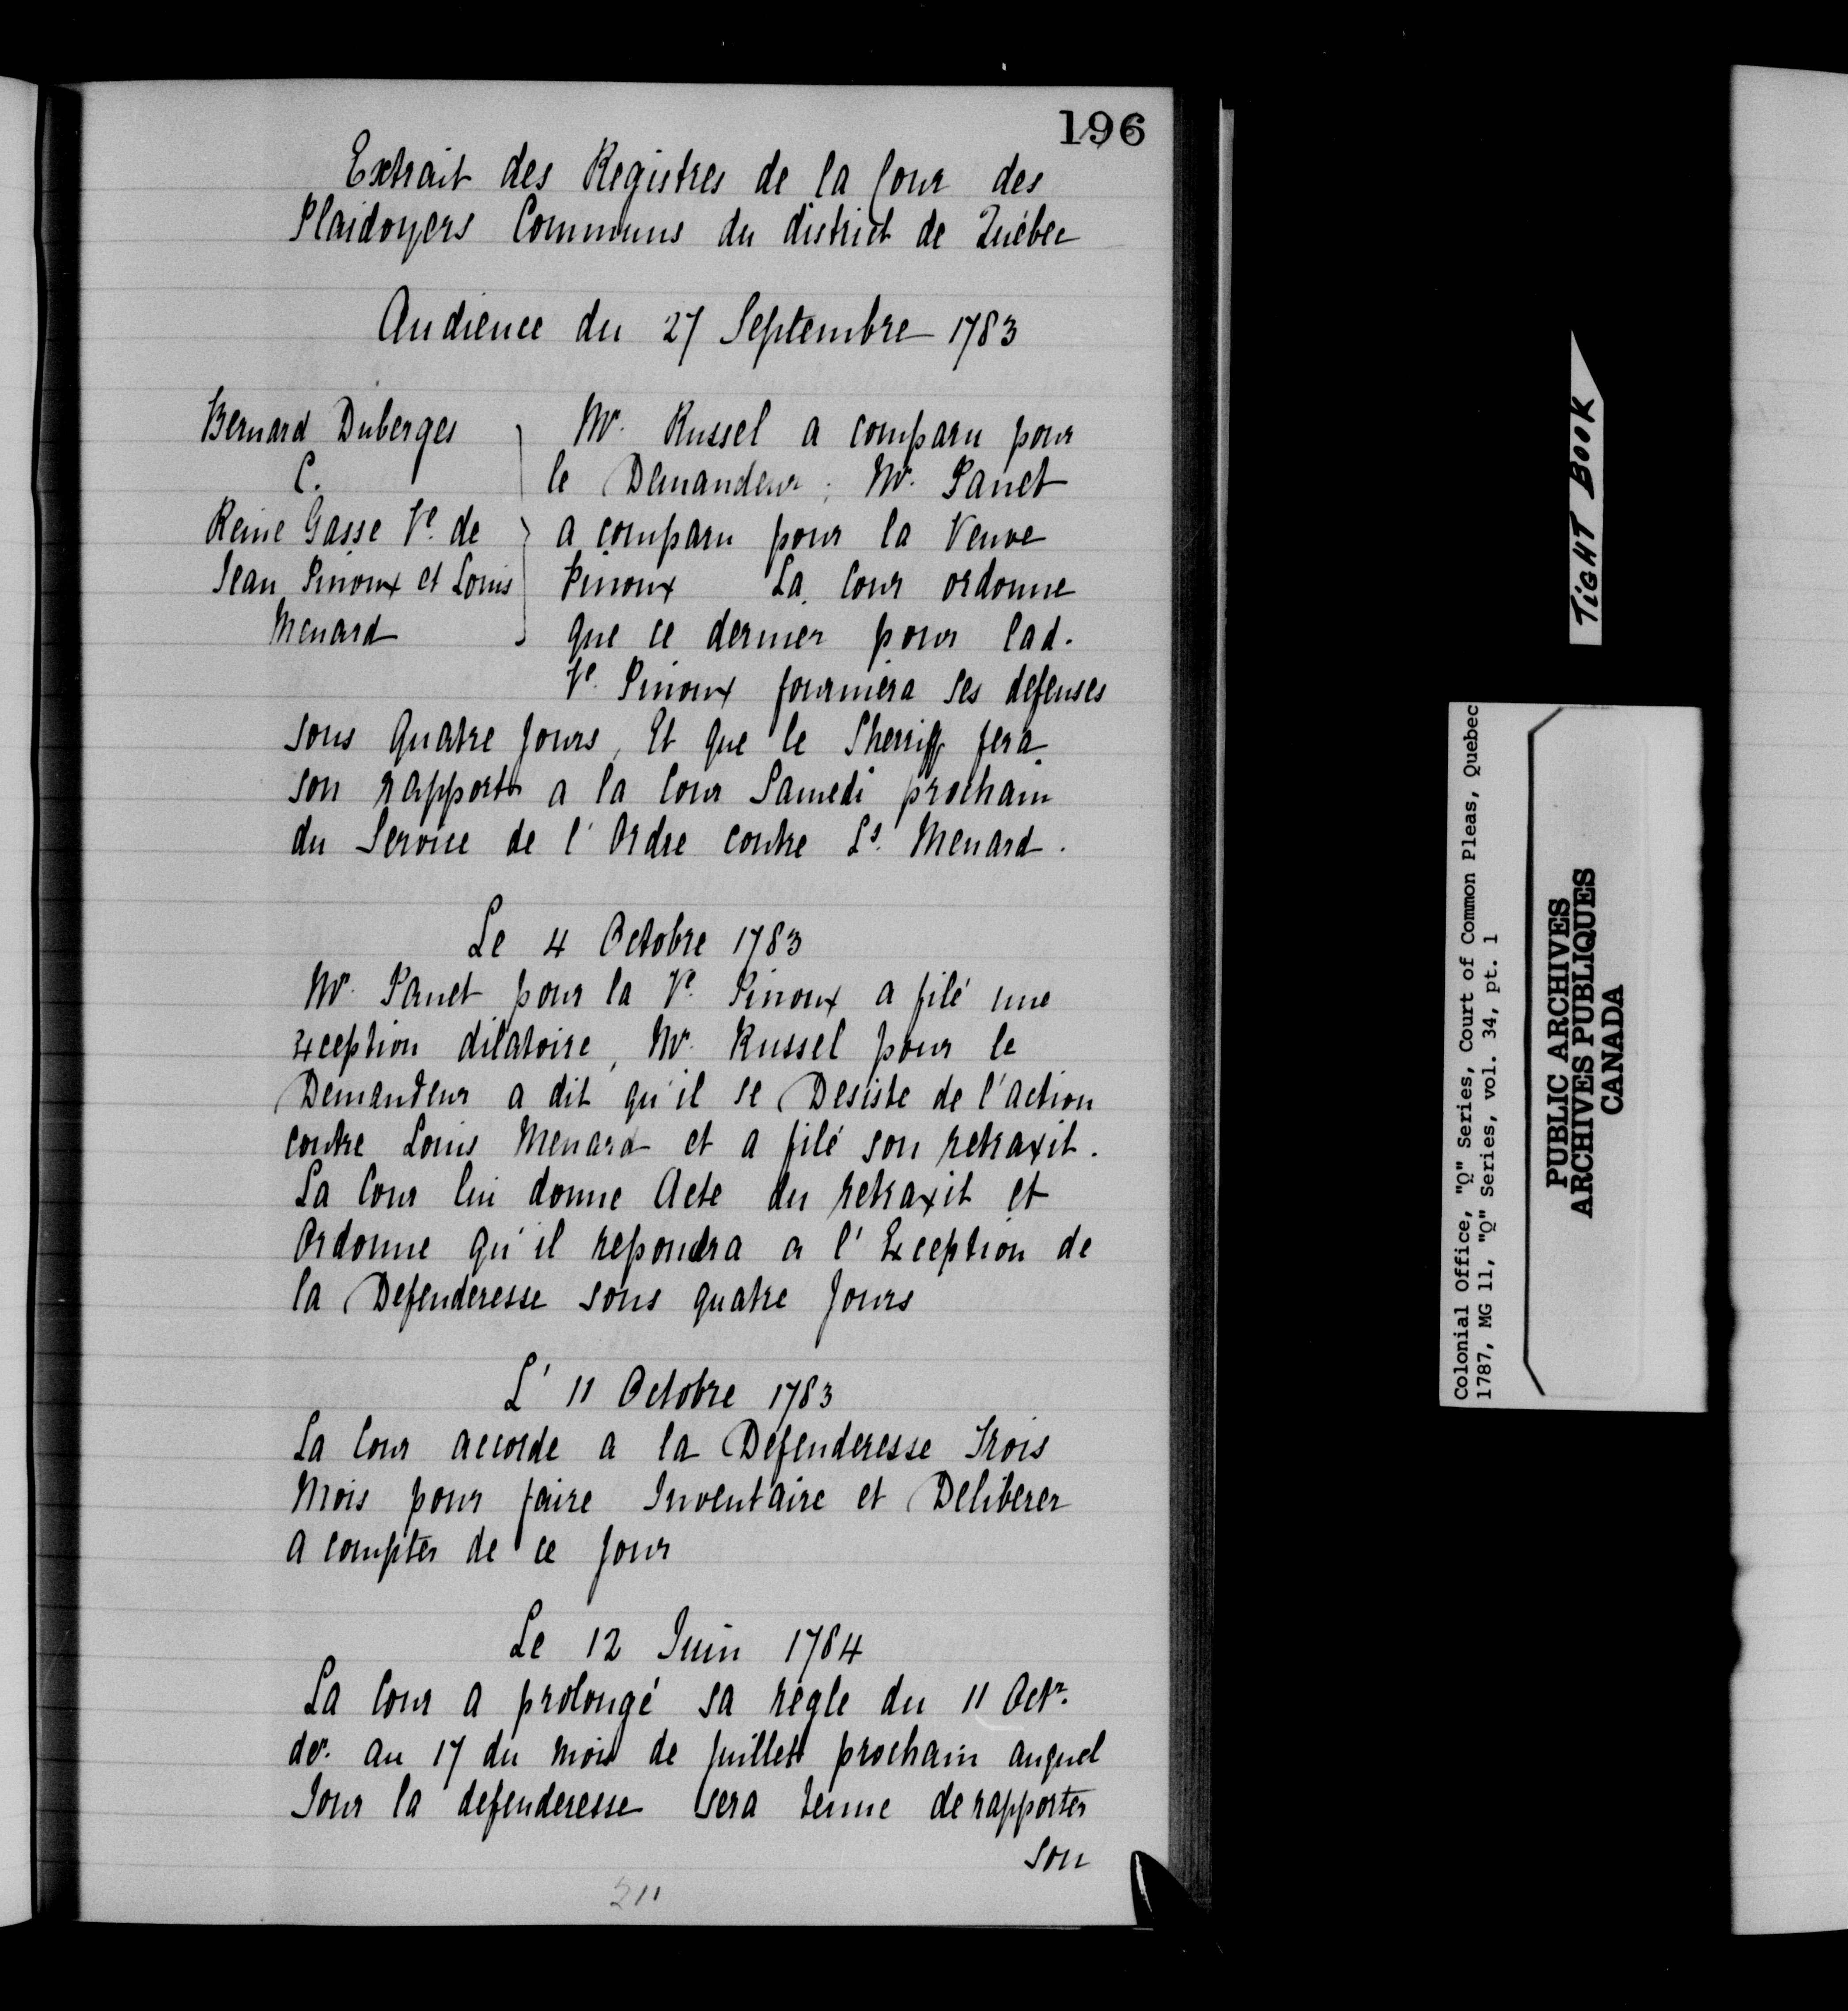 196
Extrait des Registres de la Cour des
Plaidoyers Communs du district de Québec
Audience du 27 Septembre 1783
Bernard Duberges
C.
Reine Gasse Ve. de
Jean Pinoux et Louis
Menard
Mr. Russel a comparu pour
le Demandeur; Mr. Panet
a comparu pour la Veuve
Pinoux La Cour ordonne
que ce dernier pour lad.
Ve. Pinoux fournira ses defenses
sous quatre jours, Et que le Sherriff fera
son rapport a la Cour Samedi prochain
du Service de l'Ordre contre Ls. Menard.
Le 4 Octobre 1783
Mr. Panet pour la Ve. Pinoux a filé une
exception dilatoire, Mr. Russel pour le
Demandeur a dit qu'il se Desiste de l'action
contre Louis Menard et a filé son retraxit.
La Cour lui donne Acte du retraxit et
Ordonne qu'il repondra a l'Exception de
la Defenderesse sous quatre Jours
L' 11 Octobre 1783
La Cour accorde a la Defenderesse Trois
Mois pour faire Inventaire et Deliberer
a compter de ce Jour
Le 12 Juin 1784
La Cour a prolongé sa règle du 11 Octr.
der. au 17 du mois de Juillet prochain auquel
Jour la defenderesse sera tenue de rapporter
son
211
TIGHT BOOK
Colonial Office, "Q" Series, Court of Common Pleas, Quebec
1787, MG 11, "Q" Series, vol. 34, pt. 1
PUBLIC ARCHIVES
ARCHIVES PUBLIQUES
CANADA